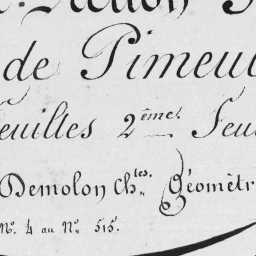 de Pimeu
Feuilles 2ème. Feui
Demolon Ch.les Géomètr
N.o 4 au N.o 515.